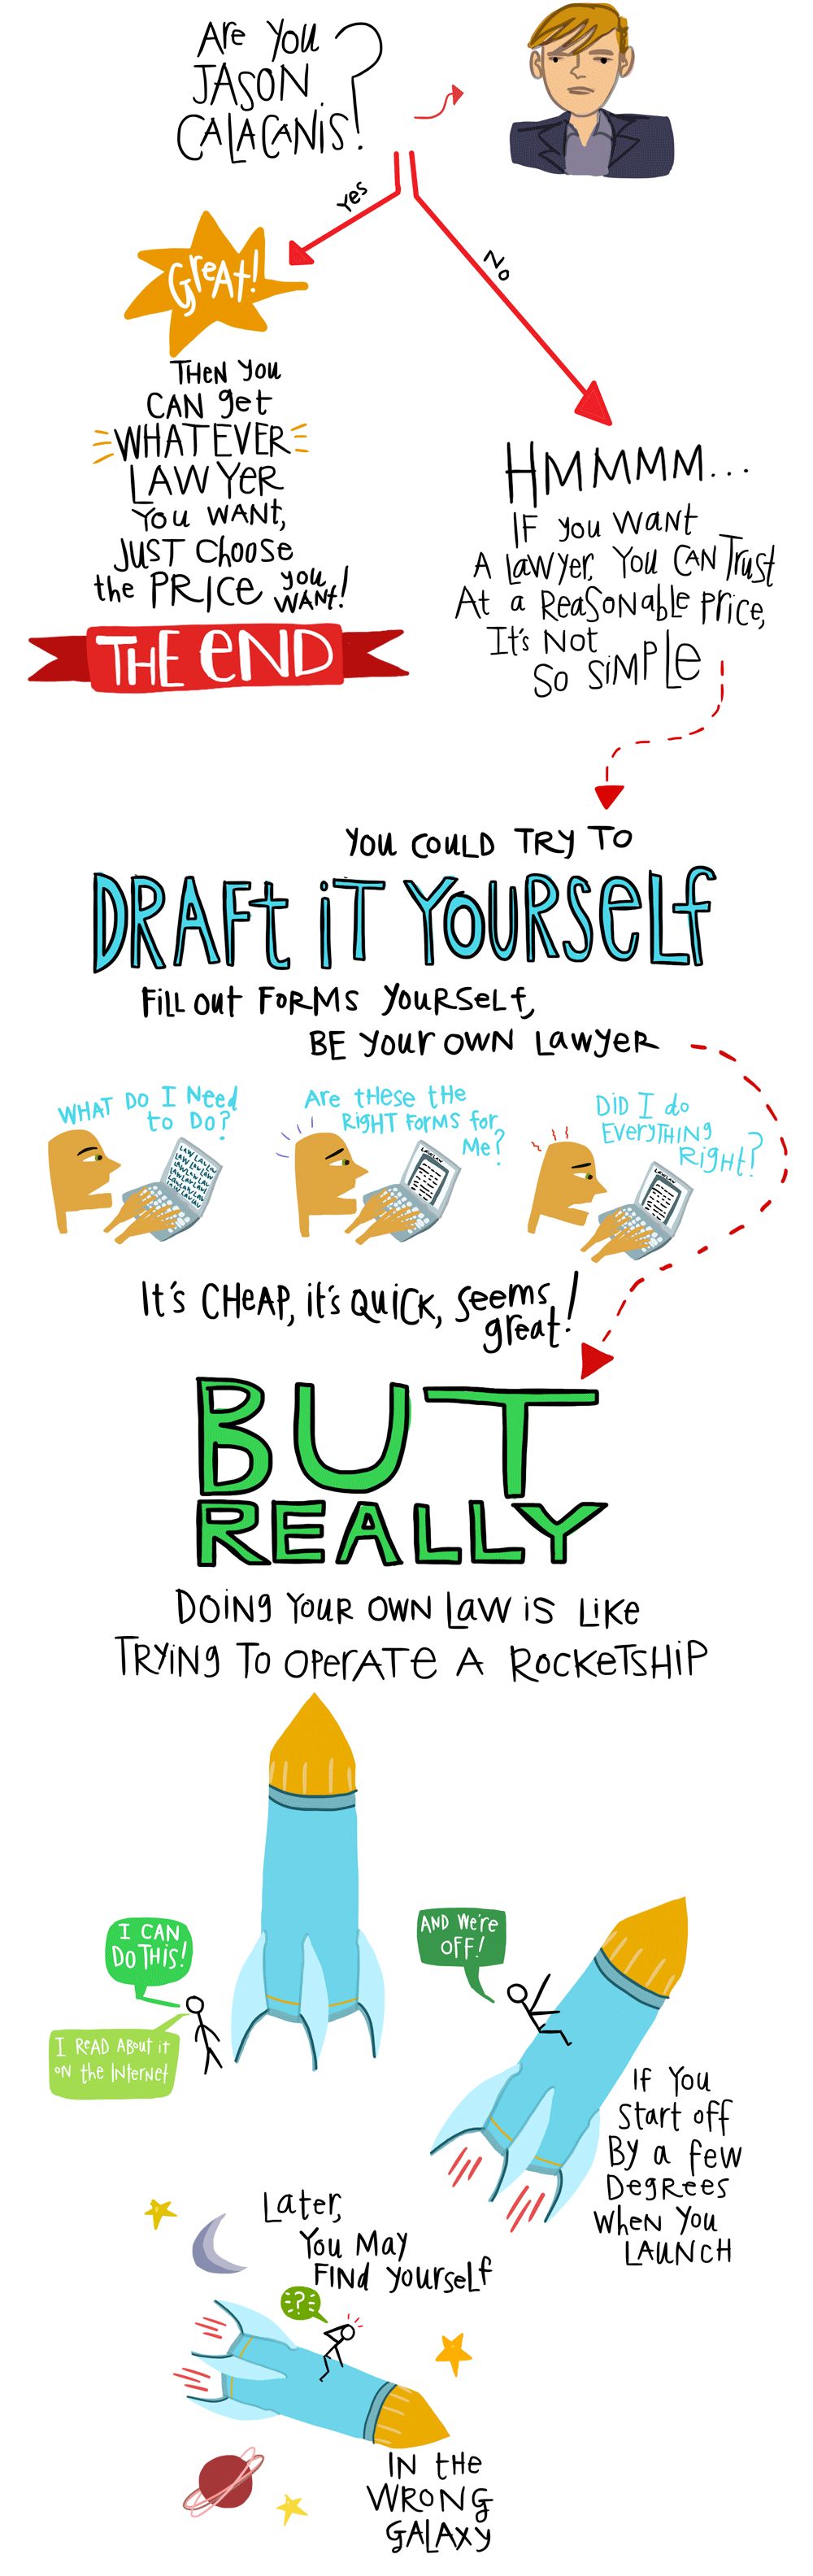 Are You
JASON
CALACANIS?
yes
No
Great!
THEN you
CAN get
WHATEVER
LAWYER
You WANT,
JUST CHOOSE
the PRICE you
WANT!
THE END
HMMMM...
IF you want
A LAWYER, YOU CAN Trust
At a REASONABLE PRICE,
It's NOT
SO SIMPLE
YOU COULD TRY TO
DRAFT IT YOURSELF
FILL OUT FORMS YOURSELF,
BE YOUR OWN LAWYER
WHAT DO I NEED
to DO?
LAW LAW LAW
LAW LAW LAW
LAW LAW LAW
LAW LAW LAW
LAW LAW LAW
Are these the
RIGHT FORMS for
Me?
LAW LAW
DID I do
EVERYTHING
Right?
LAW LAW
It's CHEAP, it's QUICK, seems
great!
BUT
REALLY
DOING YOUR OWN LAW IS LIKE
TRYING TO OPERATE A ROCKETSHIP
I CAN
DO THIS!
I READ ABOUT it
ON the INTERNET
AND We're
OFF!
IF You
Start off
By a few
DEGREES
WHEN YOU
LAUNCH
Later,
You May
FIND yourself
?
IN the
WRONG
GALAXY